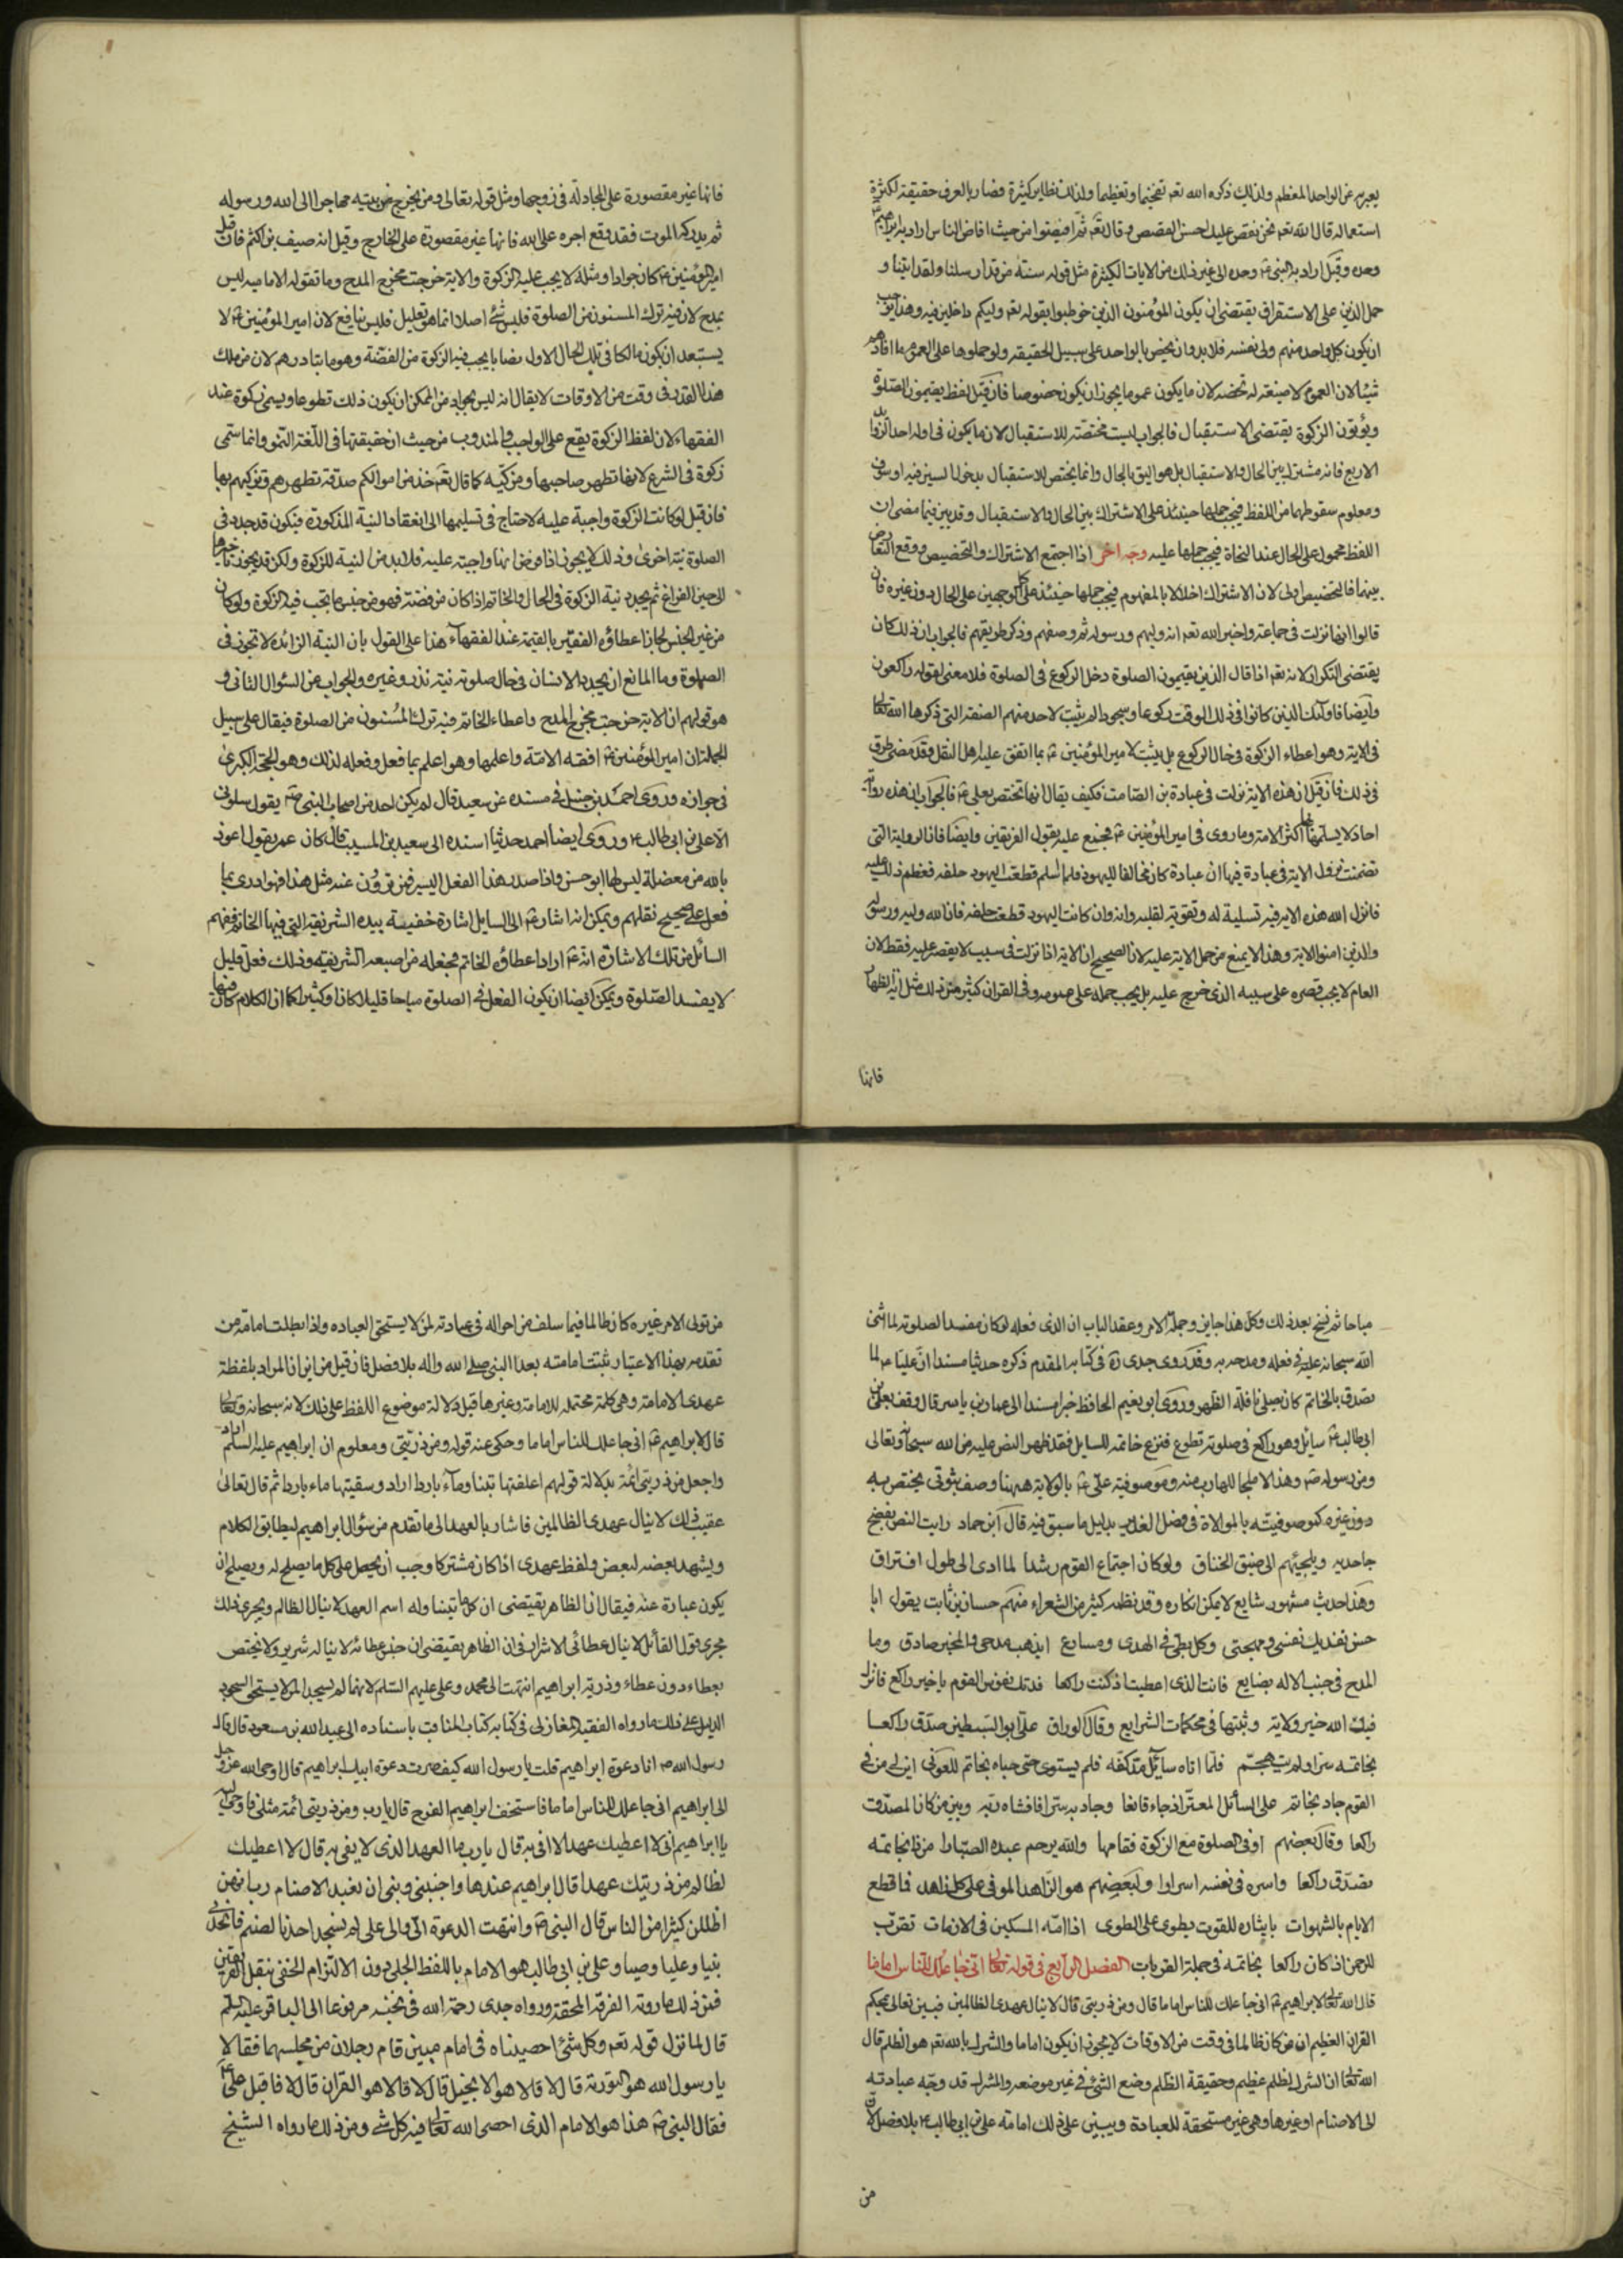 يعبر به عن الواحد المعظم ولذلك ذكره الله تعه تفخيما وتعظيما ولذلك نظاير كثيرة فصار بالعرف حقيقة لكثرة
استعماله قال الله تعه نحن نقص عليك احسن القصص وقال تعه ثم افيضوا من حيث افاض الناس اراد به ابراهيم
وحده وقيل اراد به النبي وحده الى غير ذلك من الايات الكثيرة مثل قوله سنة من قد ارسلنا ولقد اتينا و
حمل الذين على الاستغراق يقتضى ان يكون المؤمنون الذين خوطبوا بقوله تعه وليكم داخلين فيه وهذا يوجب
ان يكون كل واحد منهم ولى نفسه فلا بد وان يخص بالواحد على سبيل الحقيقه ولو حملوها على العموم ما افادهم
شيئا لان العموم لا صيغة له تخصه لان ما يكون عموما يجوز ان يكون خصوصا فان قيل لفظ يقيمون الصلوة
ويؤتون الزكوة يقتضى الاستقبال فالجواب ليست مختصة للاستقبال لان ما يكون فى اوله احد الزوايد
الاربع فانه مشترك بين الحال والاستقبال بل هو اليق بالحال وانما يختص للاستقبال بدخول السين فيه او سوف
ومعلوم سقوطهما من اللفظ فيجب حملها حينئذ على الاشتراك بين الحال والاستقبال وقد بين فيما مضى ان
اللفظ محمول على الحال عند النحاة فيجب حملها عليه وجه اخر اذا اجتمع الاشتراك والتخصيص ووقع التعارض
بينهما فالتخصيص اولى لان الاشتراك اخلالا بالمفهوم فيجب حملها حينئذ على كل الوجهين على الحال دون غيره فان
قالوا انها نزلت فى جماعة واخبر الله تعه انه وليهم ورسوله ثم وصفهم وذكر طريقهم فالجواب ان ذلك كان
يقتضى التكرار لانه تعه اذا قال الذين يقيمون الصلوة دخل الركوع فى الصلوة فلا معنى لقوله راكعون
وايضا فاولئك الذين كانوا فى ذلك الوقت ركوعا وسجودا لم يثبت لاحد منهم الصفة التى ذكرها الله تعالى
فى الاية وهو اعطاء الزكوة فى حال الركوع بل يثبت لامير المؤمنين بما اتفق عليه اهل النقل وقد مضى طرق
فى ذلك فان قيل ان هذه الاية نزلت فى عبادة بن الصامت فكيف يقال انها تختص بعلى فالجواب ان هذه رواية
احاد لا يسلمها اكثر الامة وما روى فى امير المؤمنين مجمع عليه بقول الفريقين وايضا فان الرواية التى
تضمنت نزول الاية فى عبادة فيها ان عبادة كان مخالفا لليهود فلما اسلم قطعت اليهود حلفه فعظم ذلك عليه
فانزل الله هذه الاية فيه تسلية له وتقوية لقلبه وانه وان كانت اليهود قطعت حلفه فان الله وليه ورسوله
والذين امنوا الاية وهذا لا يمنع من حمل الاية عليه لان الصحيح ان الاية اذا نزلت فى سبب لا يقصر عليه فقط لان
العام لا يجب قصره على سببه الذى خرج عليه بل يجب حمله على عمومه وفى القران كثير من ذلك مثل اية الظهار
فانها
فانها غير مقصورة على المجادلة فى زوجها ومثل قوله تعالى ومن يخرج من بيته مهاجرا الى الله ورسوله
ثم يدركه الموت فقد وقع اجره على الله فانها غير مقصورة على الخارج وقيل انه صيف بن اكثم فان قيل
امير المؤمنين كان جوادا ومثله لا يجب عليه الزكوة والاية خرجت مخرج المدح وما تقوله الامامية ليس
بمدح لان فيه ترك المسنون من الصلوة فليس شئ اصلا انما هو تعليل فليس بنافع لان امير المؤمنين لا
يستبعد ان يكون مالكا فى تلك الحال الاول نصابا يجب فيه الزكوة من الفضة وهو مايتا درهم لان من ملك
هذا القدر فى وقت من الاوقات لا يقال انه ليس بجواد من الممكن ان يكون ذلك تطوعا ويسمى زكوة عند
الفقهاء لان لفظ الزكوة يقع على الواجب والمندوب من حيث ان حقيقتها فى اللغة النمو وانما سمى
زكوة فى الشرع لانها تطهر صاحبها وتزكيه كما قال تعه خذ من اموالكم صدقة تطهرهم وتزكيهم بها
فان قيل لو كانت الزكوة واجبة عليه لاحتاج فى تسليمها الى انعقاد النية المذكورة فيكون قد جدد فى
الصلوة نية اخرى وذلك لا يجوز اذا فرض انها واجبة عليه فلا بد من النية للزكوة ولكن قد يجوز تاخيرها
الى حين الفراغ ثم يجدد نية الزكوة فى الحال والخاتم اذا كان من فضة فهو من جنس ما تجب فيه الزكوة ولو كان
من غير الجنس لجاز اعطاؤه الفقير بالقيمة عند الفقهاء هذا على القول بان النية الزائده لا تجوز فى
الصلوة وما المانع ان يجدد الانسان فى حال صلوته نية نذر وغيره والجواب عن السؤال الثانى و
هو قولهم ان الاية خرجت مخرج المدح واعطاء الخاتم فيه ترك المسنون من الصلوة فيقال على سبيل
الجملة ان امير المؤمنين افقه الامة واعلمها وهو اعلم بما فعل وفعله لذلك وهو الحجة الكبرى
فى جوازه وروى احمد بن حنبل فى مسنده عن سعيد قال لم يكن احد من اصحاب النبى يقول سلونى
الا على بن ابى طالب وروى ايضا احمد حدثنا اسنده الى سعيد بن المسيب قال كان عمر يقول اعوذ
بالله من معضلة ليس لها ابو حسن واذا صدر هذا الفعل اليسير فمن تروون عنه مثل هذا فهو ادرى بما
فعل على صحيح نقلهم ويمكن انه اشار الى السايل اشارة خفيفة بيده الشريفة التى فيها الخاتم ففهم
السائل من تلك الاشارة انه اراد اعطاؤه الخاتم فجعله من اصبعه الشريفه وذلك فعل قليل
لا يفسد الصلوة ويمكن ايضا ان يكون الفعل فى الصلوة مباحا قليلا كان او كثيرا كما ان الكلام كان فيها
مباحا ثم نسخ بعد ذلك وكل هذا جايز وجملة الامر وعقد الباب ان الذى فعله لو كان مفسدا لصلوته لما اثنى
الله سبحانه عليه فى فعله ومدحه به وقد روى جدى فى كتابه المقدم ذكره حديثا مسندا ان عليا لما
تصدق بالخاتم كان يصلى نافلة الظهر وروى ابو نعيم الحافظ خبرا مسندا الى عمار بن ياسر قال وقف بعلى بن
ابى طالب سائل وهو راكع فى صلوته تطوع فنزع خاتمه للسايل فقد ظهر النص عليه من الله سبحانه وتعالى
ومن رسوله وهذا لا ملجا للهارب منه وموصوفية على بالولاية ههنا وصف ثبوتى يختص به
دون غيره كموصوفيته بالموالاة فى فصل الغدير بدليل ما سبق فيه قال ابن حماد رايت النص يفضح
جاحديه ويلجئهم الى ضيق الخناق ولو كان اجتماع القوم رشدا لما ادى الى طول افتراق
وهذا حديث مشهور شايع لا يمكن انكاره وقد نظمه كثير من الشعراء منهم حسان بن ثابت يقول ابا
حسن تفديك نفسى ومهجتى وكل بطئ فى الهدى ومسارع ايذهب مدحى والمخبر صادق وما
المدح فى جنب الاله بضايع فانت الذى اعطيت اذ كنت راكعا فدتك نفوس القوم يا خير راكع فانزل
فيك الله خير ولاية وثبتها فى محكمات الشرايع وقال الوراق على ابو السبطين صدق راكعا
بخاتمه سرا ولم يتجهم فلما اتاه سائل مد كفه فلم يستوى حتى حباه بخاتم للعوفى اين لى من فى
القوم جاد بخاتم على السائل المعتر اذ جاء قانعا وجاد به سرا فافشاه ربه وبين من كان المصدق
راكعا وقال بعضهم اوفى الصلوة مع الزكوة فقامها والله يرحم عبده الصبارا من ذا بخاتمه
تصدق راكعا واسره فى نفسه اسرارا ولبعضهم هو الزاهد الموفى على كل زاهد فما قطع
الايام بالشهوات بايثاره للقوت يطوى على الطوى اذا امه المسكين فى الازمات تقرب
للرحمن اذ كان راكعا بخاتمه فى جملة القربات الفصل الرابع فى قوله تعالى انى جاعلك للناس اماما
قال الله تعالى لابراهيم انى جاعلك للناس اماما قال ومن ذريتى قال لا ينال عهدى الظالمين فبين تعالى بمحكم
القران العظيم ان من كان ظالما فى وقت من الاوقات لا يجوز ان يكون اماما والشرك بالله تعه هو الظلم قال
الله تعالى ان الشرك لظلم عظيم وحقيقة الظلم وضع الشئ فى غير موضعه والمشرك قد وجه عبادته
الى الاصنام او غيرها وهى غير مستحقة للعبادة ويبين على ذلك امامة على بن ابى طالب بلا فصل لان
من
من تولى الامر غيره كان ظالما فيما سلف من احواله فى عبادته لمن لا يستحق العباده واذا بطلت امامة من
تقدمه بهذا الاعتبار ثبتت امامته بعد النبى صلى الله واله بلا فصل فان قيل من اين ان المراد بلفظة
عهدى الامامة وهى كلمة محتمله للامامة وغيرها قيل دلالة موضوع اللفظ على ذلك لانه سبحانه وتعالى
قال لابراهيم انى جاعلك للناس اماما وحكى عنه قوله ومن ذريتى ومعلوم ان ابراهيم عليه السلم اراد
واجعل من ذريتى ائمة بدلالة قولهم اعلفتها تبنا وماء باردا اراد وسقيتها ماء باردا ثم قال تعالى
عقيب ذلك لا ينال عهدى الظالمين فاشار بالعهد الى ما تقدم من سؤال ابراهيم ليطابق الكلام
ويشهد بعضه لبعض ولفظ عهدى اذا كان مشتركا وجب ان يحمل على كل ما يصلح له ويصلح ان
يكون عبارة عنه فيقال ان الظاهر يقتضى ان كل ما تتناوله اسم العهد لا ينال الظالم ويجرى ذلك
مجرى قول القائل لا ينال عطائى الاشرار فى ان الظاهر يقتضى ان جنس عطائه لا يناله شرير ولا يختص
بعطاء دون عطاء وذرية ابراهيم انتهت الى محمد وعلى عليهم السلم لانهما لم يسجدا لمن لا يستحق السجود
الدليل على ذلك ما رواه الفقيه المغازلى فى كتابه كتاب المناقب باسناده الى عبد الله بن مسعود قال قال
رسول الله انا دعوة ابراهيم قلت يا رسول الله كيف صرت دعوة ابيك ابراهيم قال اوحى الله عز وجل
الى ابراهيم انى جاعلك للناس اماما فاستخف ابراهيم الفرح قال يا رب ومن ذريتى ائمة مثلى فاوحى اليه
يا ابراهيم انى لا اعطيك عهدا لا افى به قال يا رب ما العهد الذى لا يفى به قال لا اعطيك
لظالم من ذريتك عهدا قال ابراهيم عندها واجنبنى وبنى ان نعبد الاصنام رب انهن
اظللن كثيرا من الناس قال النبى وانتهت الدعوة الى والى على لم يسجد احدنا لصنم فاتخذنى
نبيا وعليا وصيا وعلى بن ابى طالب هو الامام باللفظ الجلى دون الالتزام الخفى بنقل الفريقين
فمن ذلك ما روته الفرقة المحقة ورواه جدى رحمة الله فى نخبه مرفوعا الى الباقر عليه السلم
قال لما نزل قوله تعه وكل شئ احصيناه فى امام مبين قام رجلان من مجلسهما فقالا
يا رسول الله هو التورية قال لا قالا هو الانجيل قال لا قالا هو القران قال لا فاقبل على
فقال النبى هذا هو الامام الذى احصى الله تعالى فيه كل شئ ومن ذلك ما رواه الشيخ